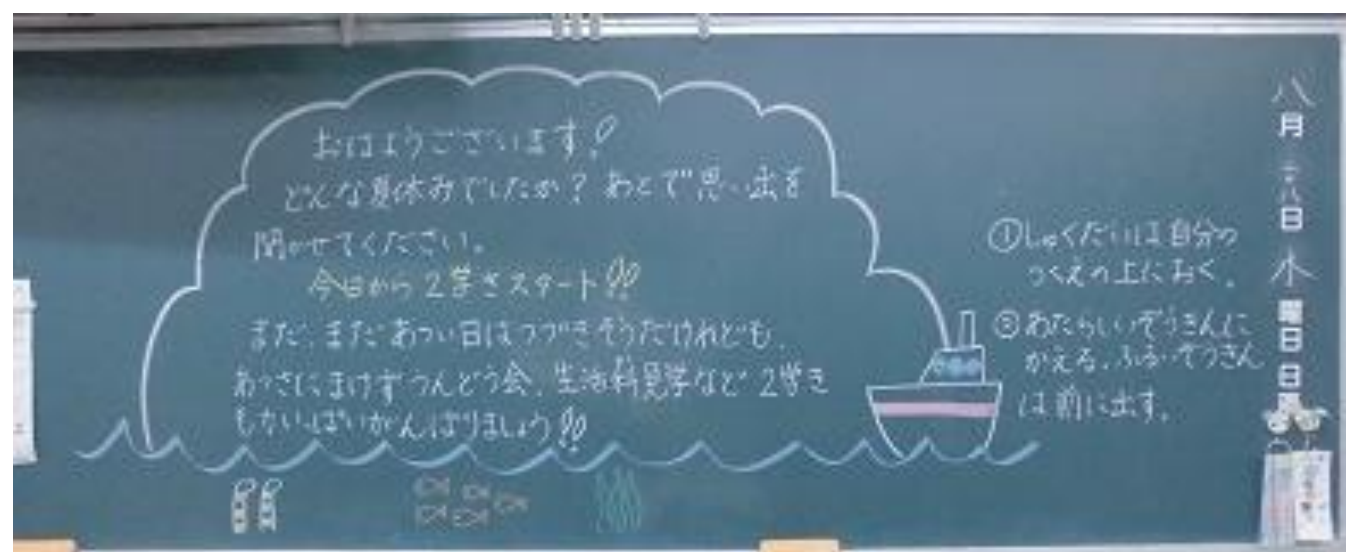 おはようございます!
どんな夏休みでしたか? あとで思い出を
聞かせてください。
今日から2学きスタート!!
まだ、まだあつい日はつづきそうだけれども、
あつさにまけずうんどう会、生活科見学など2学き
もがんばりましょう!!
①しゅくだいは自分の
つくえの上におく。
②あたらしいぞうきんに
かえる。ふるいぞうきん
は前に出す。
八月 二十八日 水曜日 日直